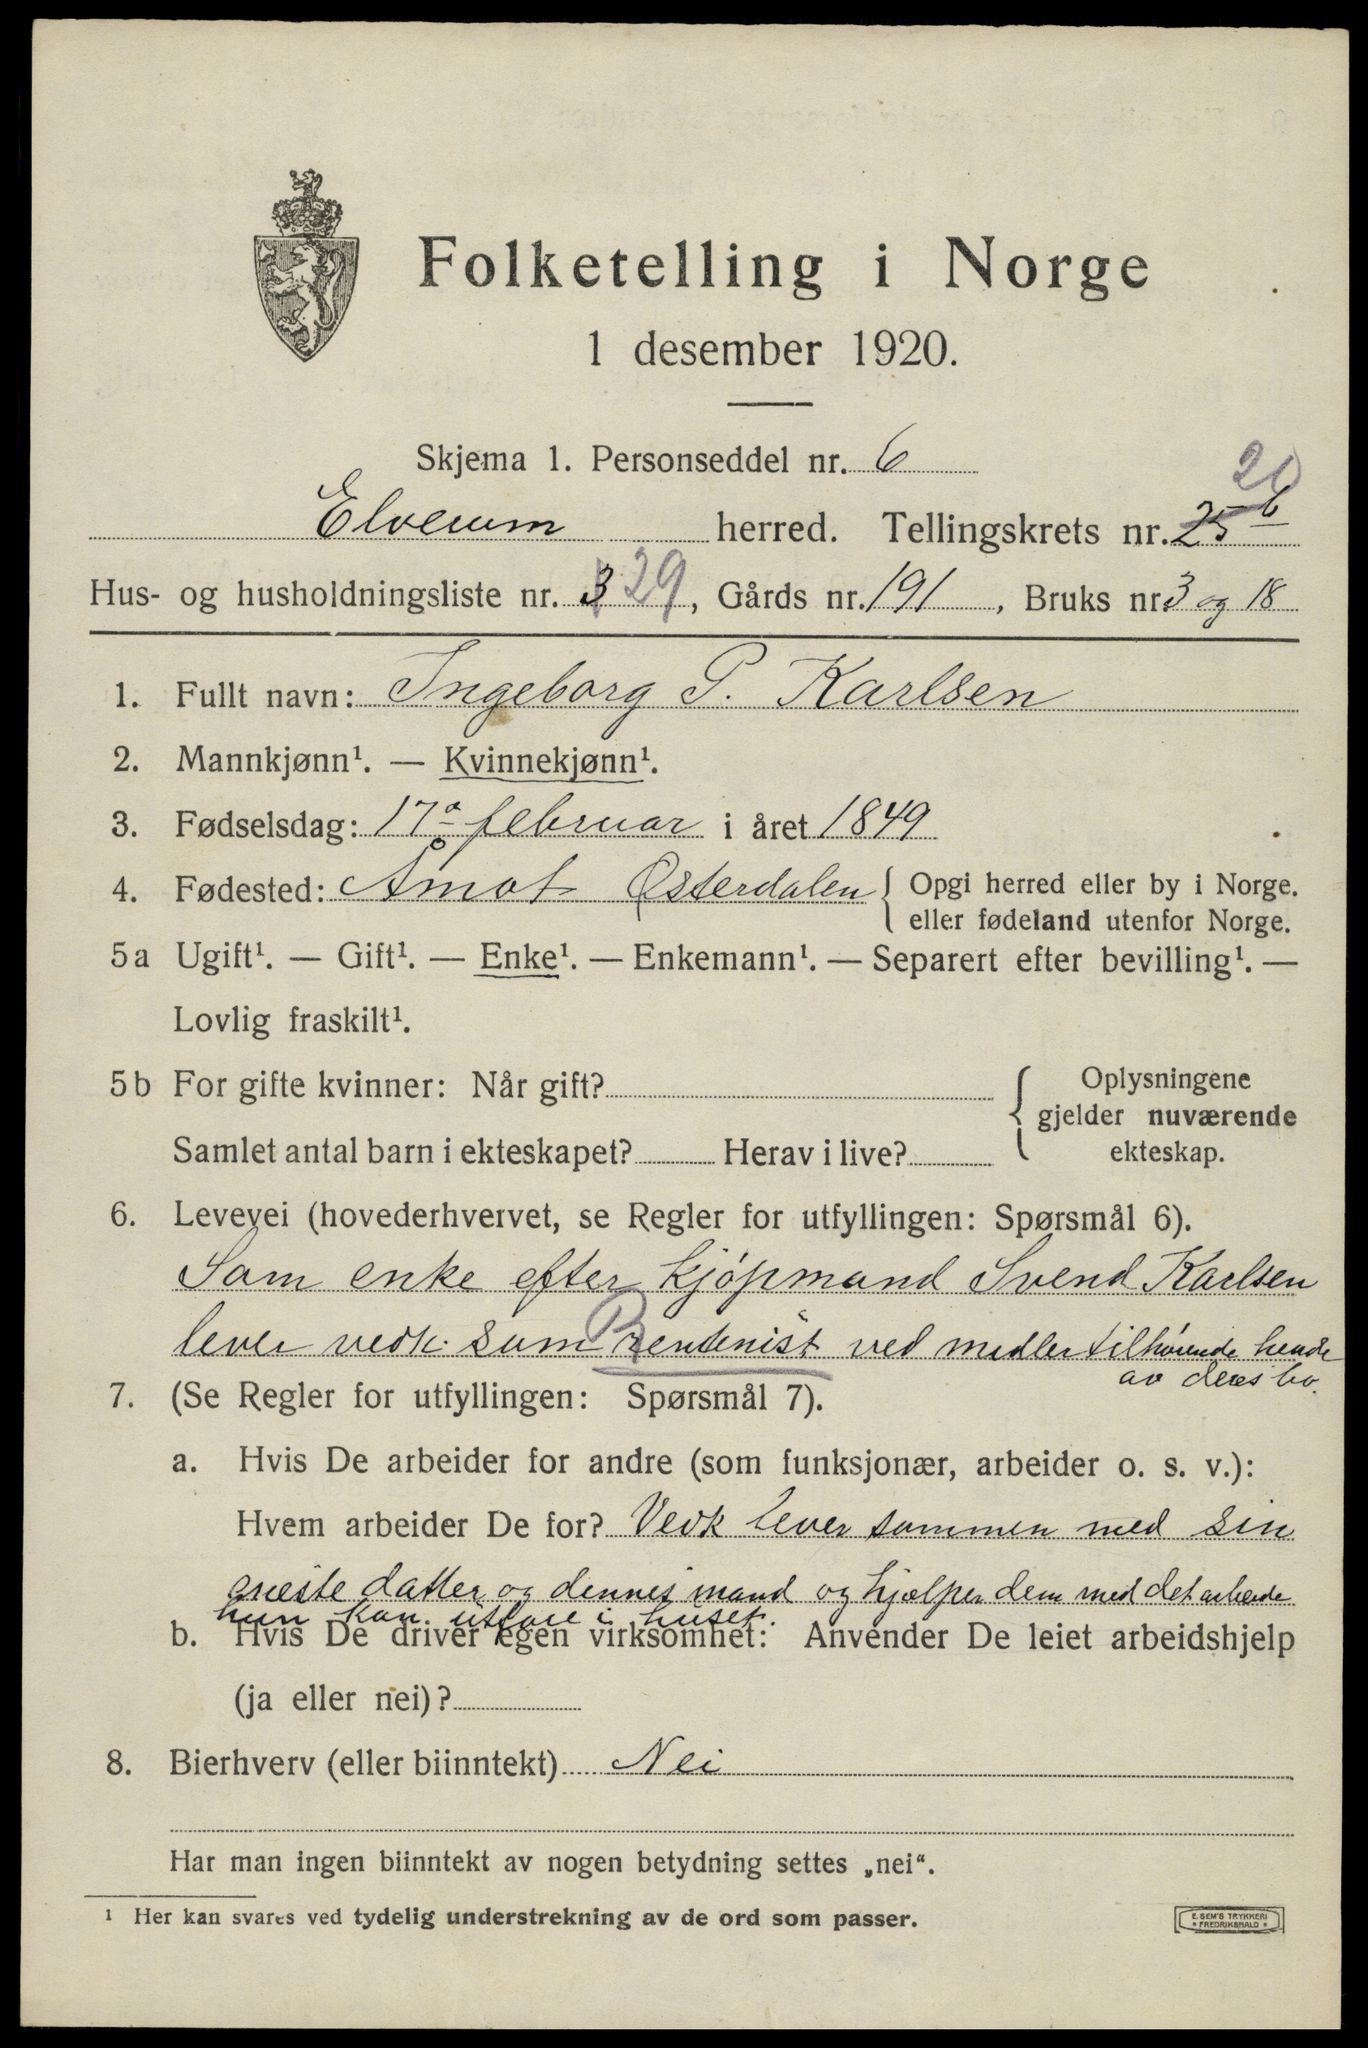 Folketelling i Norge
1 desember 1920.
Skjema 1. Personseddel nr. 6
20
Elverum herred. Tellingskrets nr. 25 b
Hus- og husholdningsliste nr. 3 29, Gårds nr. 191, Bruks nr. 3 og 18
1. Fullt navn: Ingeborg P. Karlsen
2. Mannkjønn¹. — Kvinnekjønn¹.
3. Fødselsdag: 17de februar i året 1849
4. Fødested: Åmot Østerdalen { Opgi herred eller by i Norge.
eller fødeland utenfor Norge.
5a Ugift¹. — Gift¹. — Enke¹. — Enkemann¹. — Separert efter bevilling¹. —
Lovlig fraskilt¹.
5b For gifte kvinner: Når gift?
Samlet antal barn i ekteskapet? Herav i live?
Oplysningene
gjelder nuværende
ekteskap.
6. Levevei (hovederhvervet, se Regler for utfyllingen: Spørsmål 6).
Som enke efter kjøpmand Svend Karlsen
lever vedk. som R rentenist ved midler tilhørende hende
av deres bo.
7. (Se Regler for utfyllingen: Spørsmål 7).
a. Hvis De arbeider for andre (som funksjonær, arbeider o. s. v.):
Hvem arbeider De for? Vedk lever sammen med sin
eneste datter og dennes mand og hjælper dem med det arbeide
hun kan utføre i huset.
b. Hvis De driver egen virksomhet: Anvender De leiet arbeidshjelp
(ja eller nei)?
8. Bierhverv (eller biinntekt) Nei
Har man ingen biinntekt av nogen betydning settes „nei“.
¹ Her kan svares ved tydelig understrekning av de ord som passer.
E. SEM'S TRYKKERI
* FREDRIKSHALD *